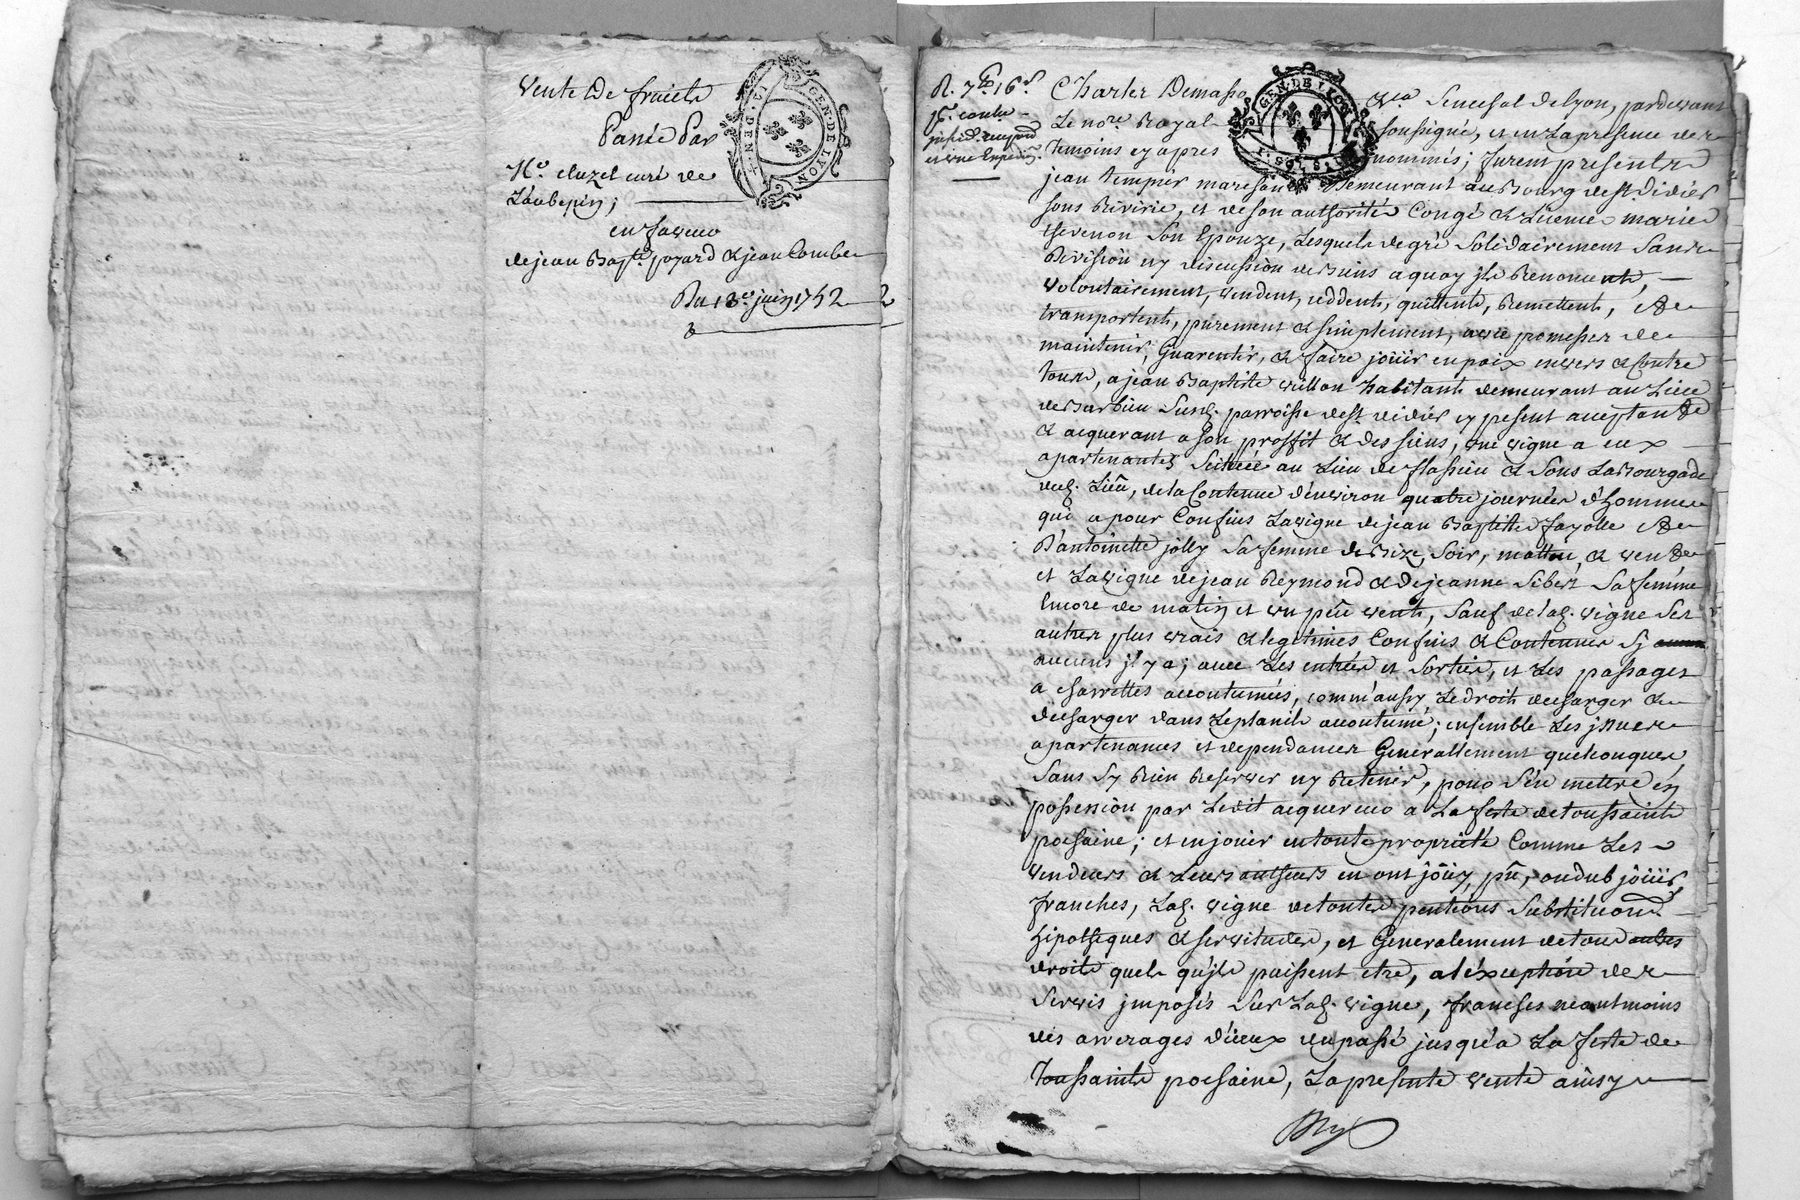 Vente de fruicts
Passé Par
Me. cluzel curé de
Laubepin;
en faveur
de jean Bapte. poyard & jean Combe
Du 18e. juin 1752
GEN. DE LYON
R. 7bre 16s.
Charles Demasso
GEN. DE LYON
Senechal de Lyon, pardevant
Le nore. Royal soussigné, et en La presence des
temoins cy apres nommés; furent presents
jean tempier marechal demeurant au Bourg de st. didier
sous Riverie, et de son authorité Congé & Licence marie
thevenon Son Epouze, Lesquels de gré Solidairement Sans
Division ny discussion de biens a quoy ils Renoncent,
volontairement, vendent, ceddent, quittent, Remettent, &
transportent, purement & simplement, avec promesses de
maintenir, Guarentir, & faire joüir en paix envers & Contre
tous, a jean Baptiste villon habitant demeurant au Lieu
de Barbieu Susd. parroisse de st. didier cy present acceptant
& acquerant a son proffit & des siens, une vigne a eux
apartenante Scituée au Lieu de flassieu & Sous La Bourgade
dud. Lieu, de la Contenue d'environ quatre journées d'hommes
qui a pour Confins La vigne de jean Baptiste fayolle &
D'antoinette jolly Sa femme de Bize, Soir, matin, & vent
et La vigne de jean Reymond & de jeanne Sibert Sa femme
Encore de matin et un peu vent, Sauf de lad. vigne Ses
autres plus vrais & legitimes Confins & Contenues Sy
aucuns jl y a; avec Les entrées et Sorties, et Les passages
a charrettes accoutumées, comm'aussy Le droit de charger &
decharger dans Le plantié accoutumé; ensemble Les jssues
apartenances et dependances Generallement quelconques
Sans Sy Rien Reserver ny Retenir, pour S'en mettre en
possession par Ledit acquereur a La feste de toussaints
prochaine; et en joüir en toute proprieté Comme Les
vendeurs & Leurs autheurs en ont joüy, pû, ou dub joüir
franches, Lad. vigne de toutes pentions Substitutions
hipotheques & servitudes, et Generalement de tous autres
droits quels qu'ils puissent etre, a l'exception des
Servis jmposés Sur Lad. vigne, franches neantmoins
des arrerages d'iceux du passé jusqu'a La feste de
toussaints prochaine, La presente vente ainsy